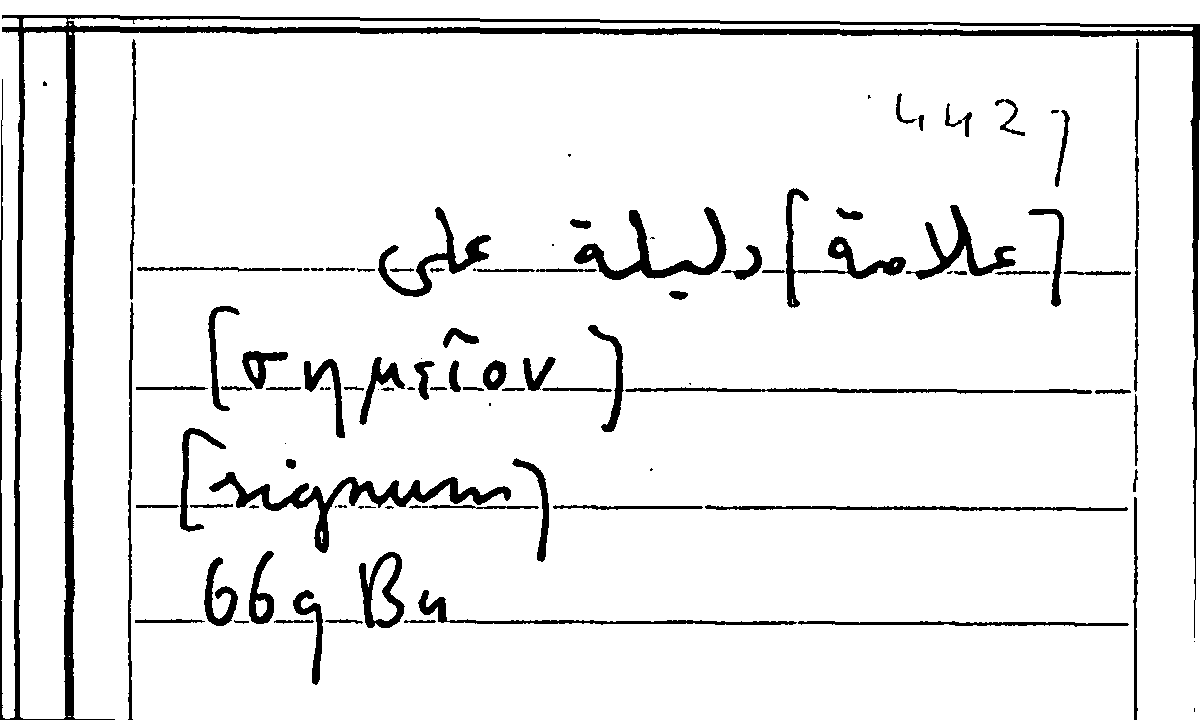 4427
[علامة] دليلة على
[σημεῖον]
[signum]
669 B4